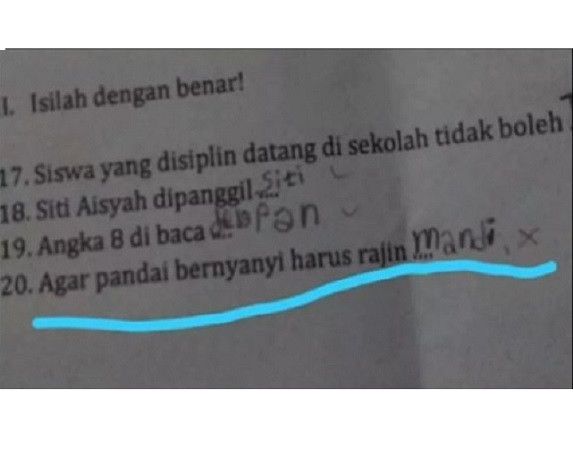 I. Isilah dengan benar!
17. Siswa yang disiplin datang di sekolah tidak boleh
18. Siti Aisyah dipanggil... Siti
19. Angka 8 di baca ...
20. Agar pandai bernyanyi harus rajin .... Mandi.